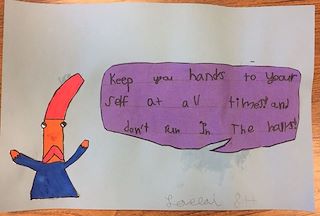 Keep you hands to your
self at all times and
don't run In The halls!